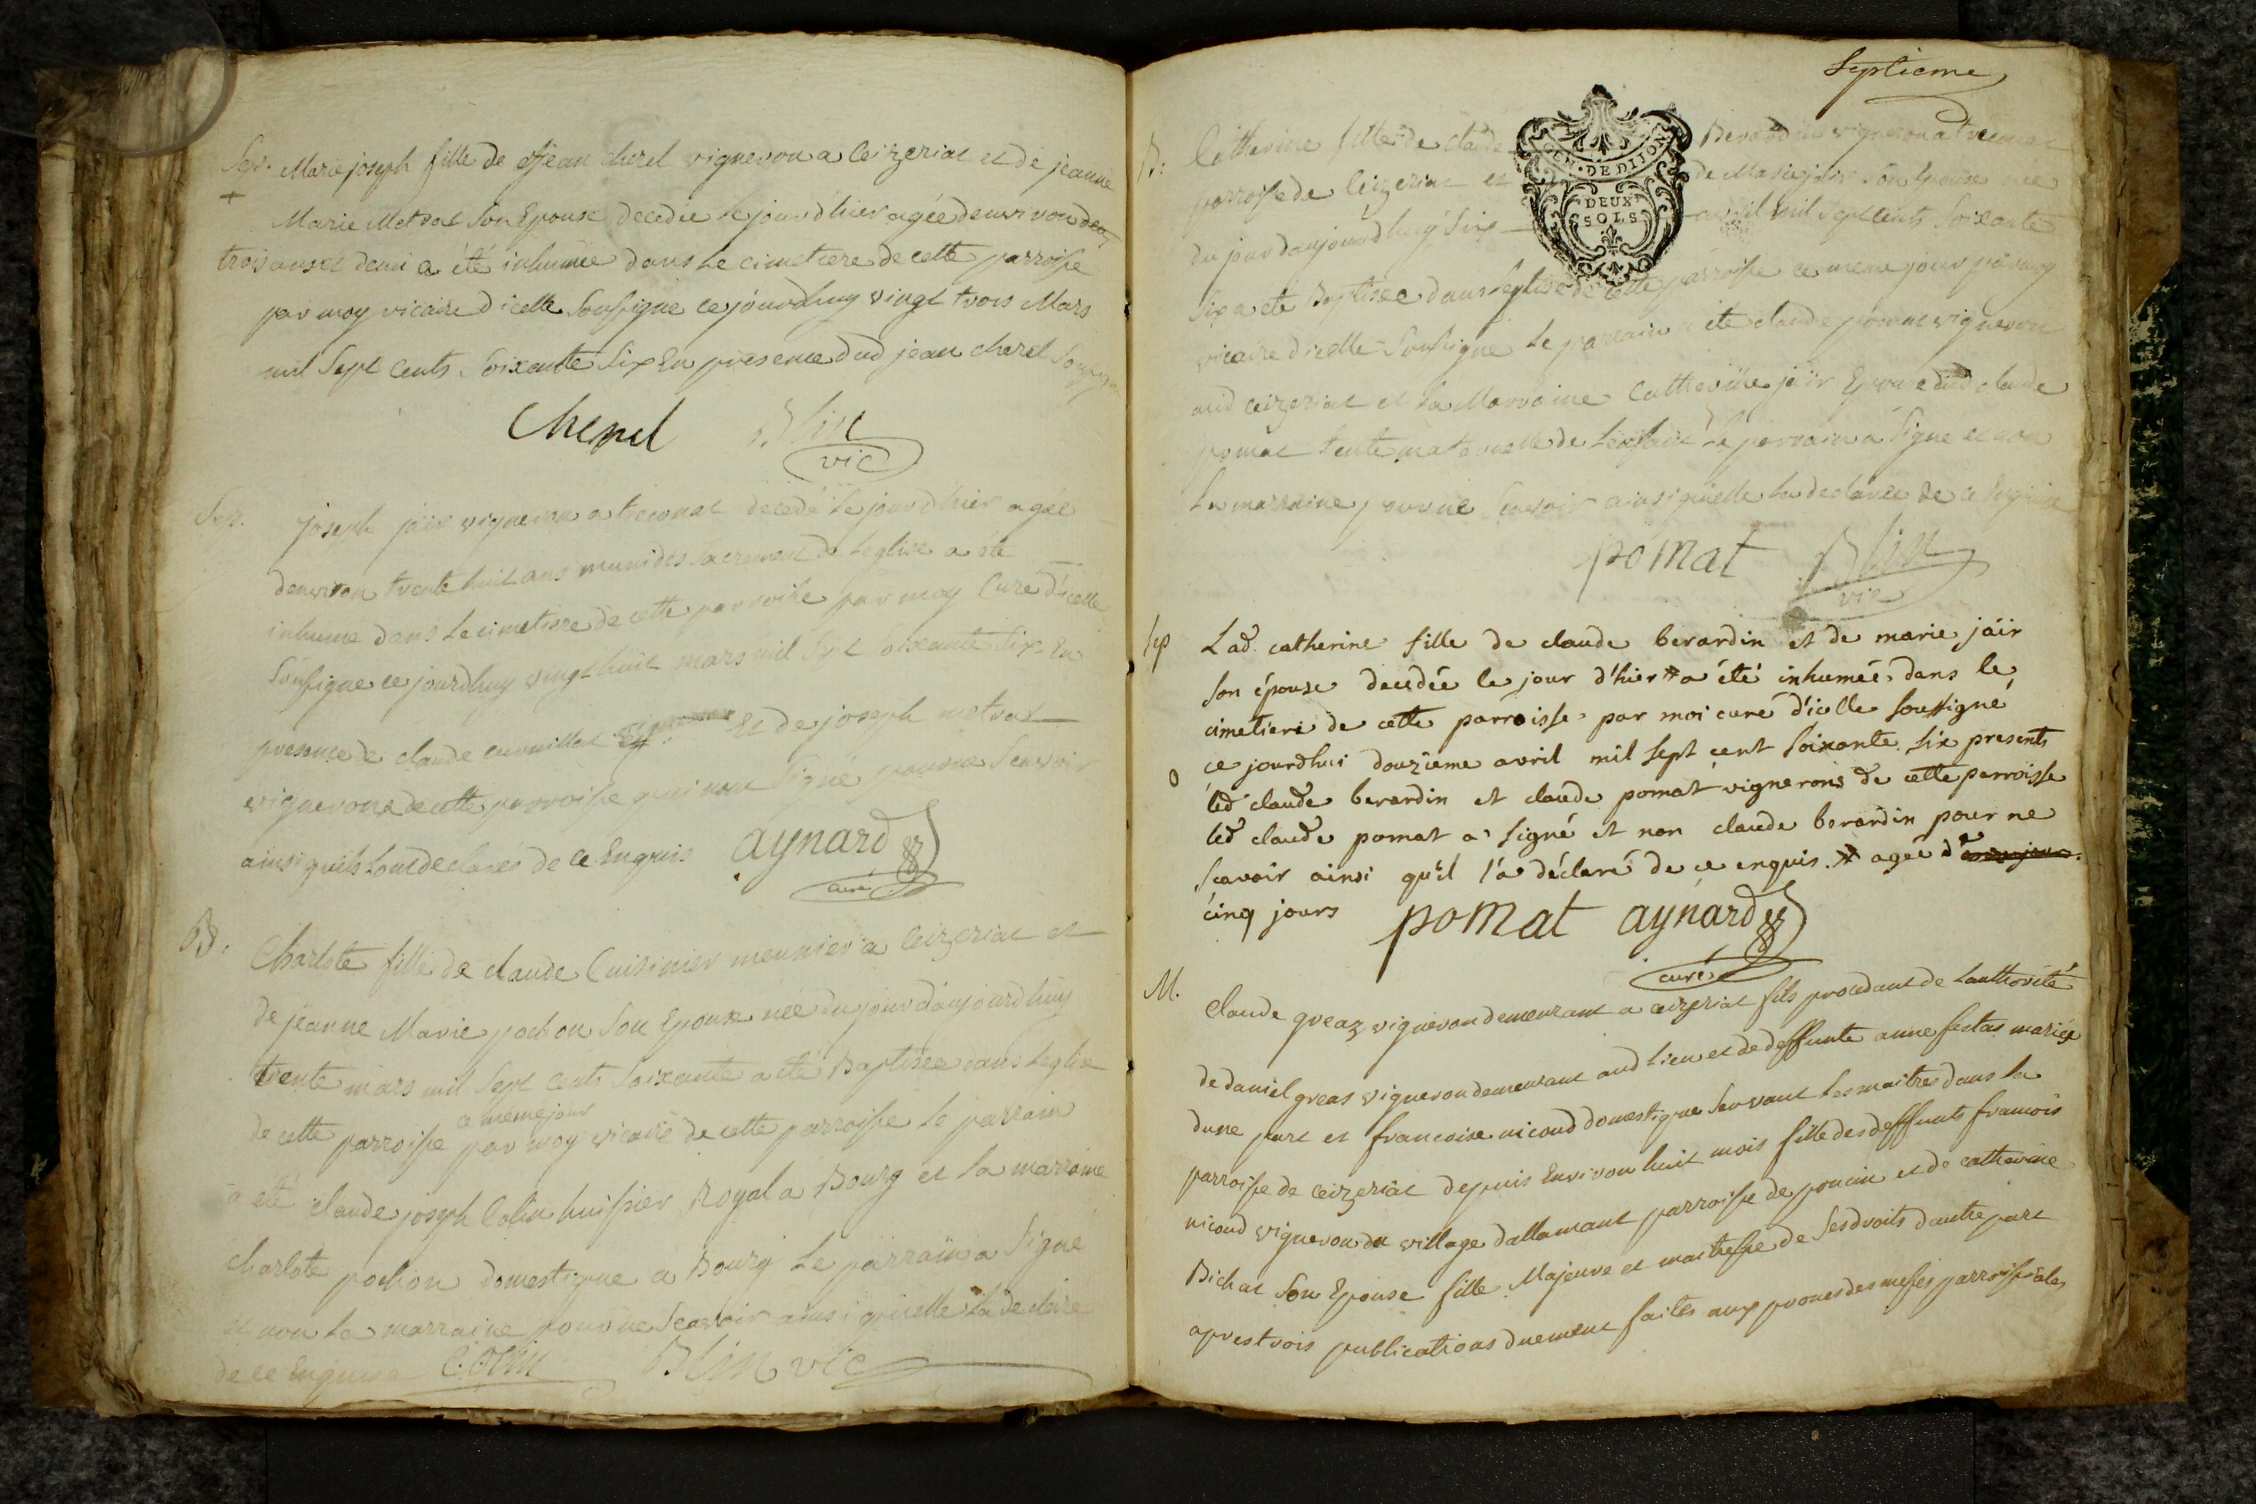 Sep. Marie joseph fille de jean cherel vigneron a Ceizeriat et de jeanne
Marie Metral son Epouse decedee le jour d'hier agée denviron deux
trois ans et demi a été inhumée dans le cimetiere de cette parroisse
par moy vicaire d'icelle soussigné ce jourdhuy vingt trois Mars
mil sept cents soixante six En presence dud jean cherel
Cherel Blin
vic
Sep. joseph jäir vigneron a treconat décédé le jour d'hier agée
denviron trente huit ans munides sacrement de leglise a été
inhumé dans le cimetiere de cette parroisse par moy Curé d'icelle
soussigné ce jourdhuy vingt huit mars mil sept soixante six En
presence de claude Et de joseph metral
vignerons de cette parroisse qui non signé pour ne scavoir
ainsi quils lont declarés de ce Enquis aynard
curé
B. Charlote fille de claude Cuisinier meunier a Ceizeriat et
de jeanne Marie pochon son Epouse née du jour d'aujourdhuy
trente mars mil sept cents soixante a été Baptisée dans leglise
ce meme jour
de cette parroisse par moy vicaire de cette parroisse le parrain
a été claude joseph Colin huissier Royal a Bourg et la marraine
charlote pochon domestique a Bourg le parrain a signé
et non la marraine pour ne scavoir ainsi qu'elle la declaré
de ce Enquise C. Colin Blin vic
Septieme
GEN. DE DIJON
DEUX
SOLS
B. Catherine fille de claude Berardin vigneron a treconat
parroisse de Ceizeriat et de Marie jäir son Epouse née
du jour daujourdhuy six avril mil sept cents soixante
six a été Baptisée dans leglise de cette parroisse ce meme jour par moy
vicaire d'icelle soussigné le parrain a été claude pomat vigneron
aud ceizeriat et la Marraine Catherine jäir Epouse dud claude
pomat tante maternelle de lenfant le parrain a signé et non
la marraine pour ne scavoir ainsi quelle la declarée de ce Enquise
pomat Blin
vic
Sep Lad. catherine fille de claude berardin et de marie jäir
son épouse decédée le jour d'hier # a été inhumée dans le
cimetiere de cette parroisse par moi curé d'icelle soussigné
ce jourdhui douzieme avril mil sept cent soixante six presents
o led claude berardin et claude pomat vignerons de cette parroisse
led claude pomat a signé et non claude berardin pour ne
scavoir ainsi qu'il l'a déclaré de ce enquis. # agée d'
cinq jours pomat aynard
curé
M. Claude greaz vigneron demeurant a ceizeriat fils procedant de lauthorité
de daniel greas vigneron demeurant aud lieu et de deffunte anne festas mariés
dune part et francoise nicoud domestique servant les maitres dans la
parroisse de ceizeriat depuis Environ huit mois fille des deffunts francois
nicoud vigneron du village dallamant parroisse de poncin et de catherine
Bichat son Epouse fille Majeure et maitresse de ses droits dautre part
apres trois publications duement faites aux prones des messes parroissiales